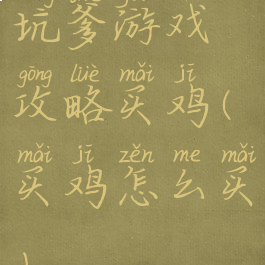 坑爹游戏
gōng lüè mǎi jī
攻略买鸡(
mǎi jī zěn me mǎi
买鸡怎么买
)